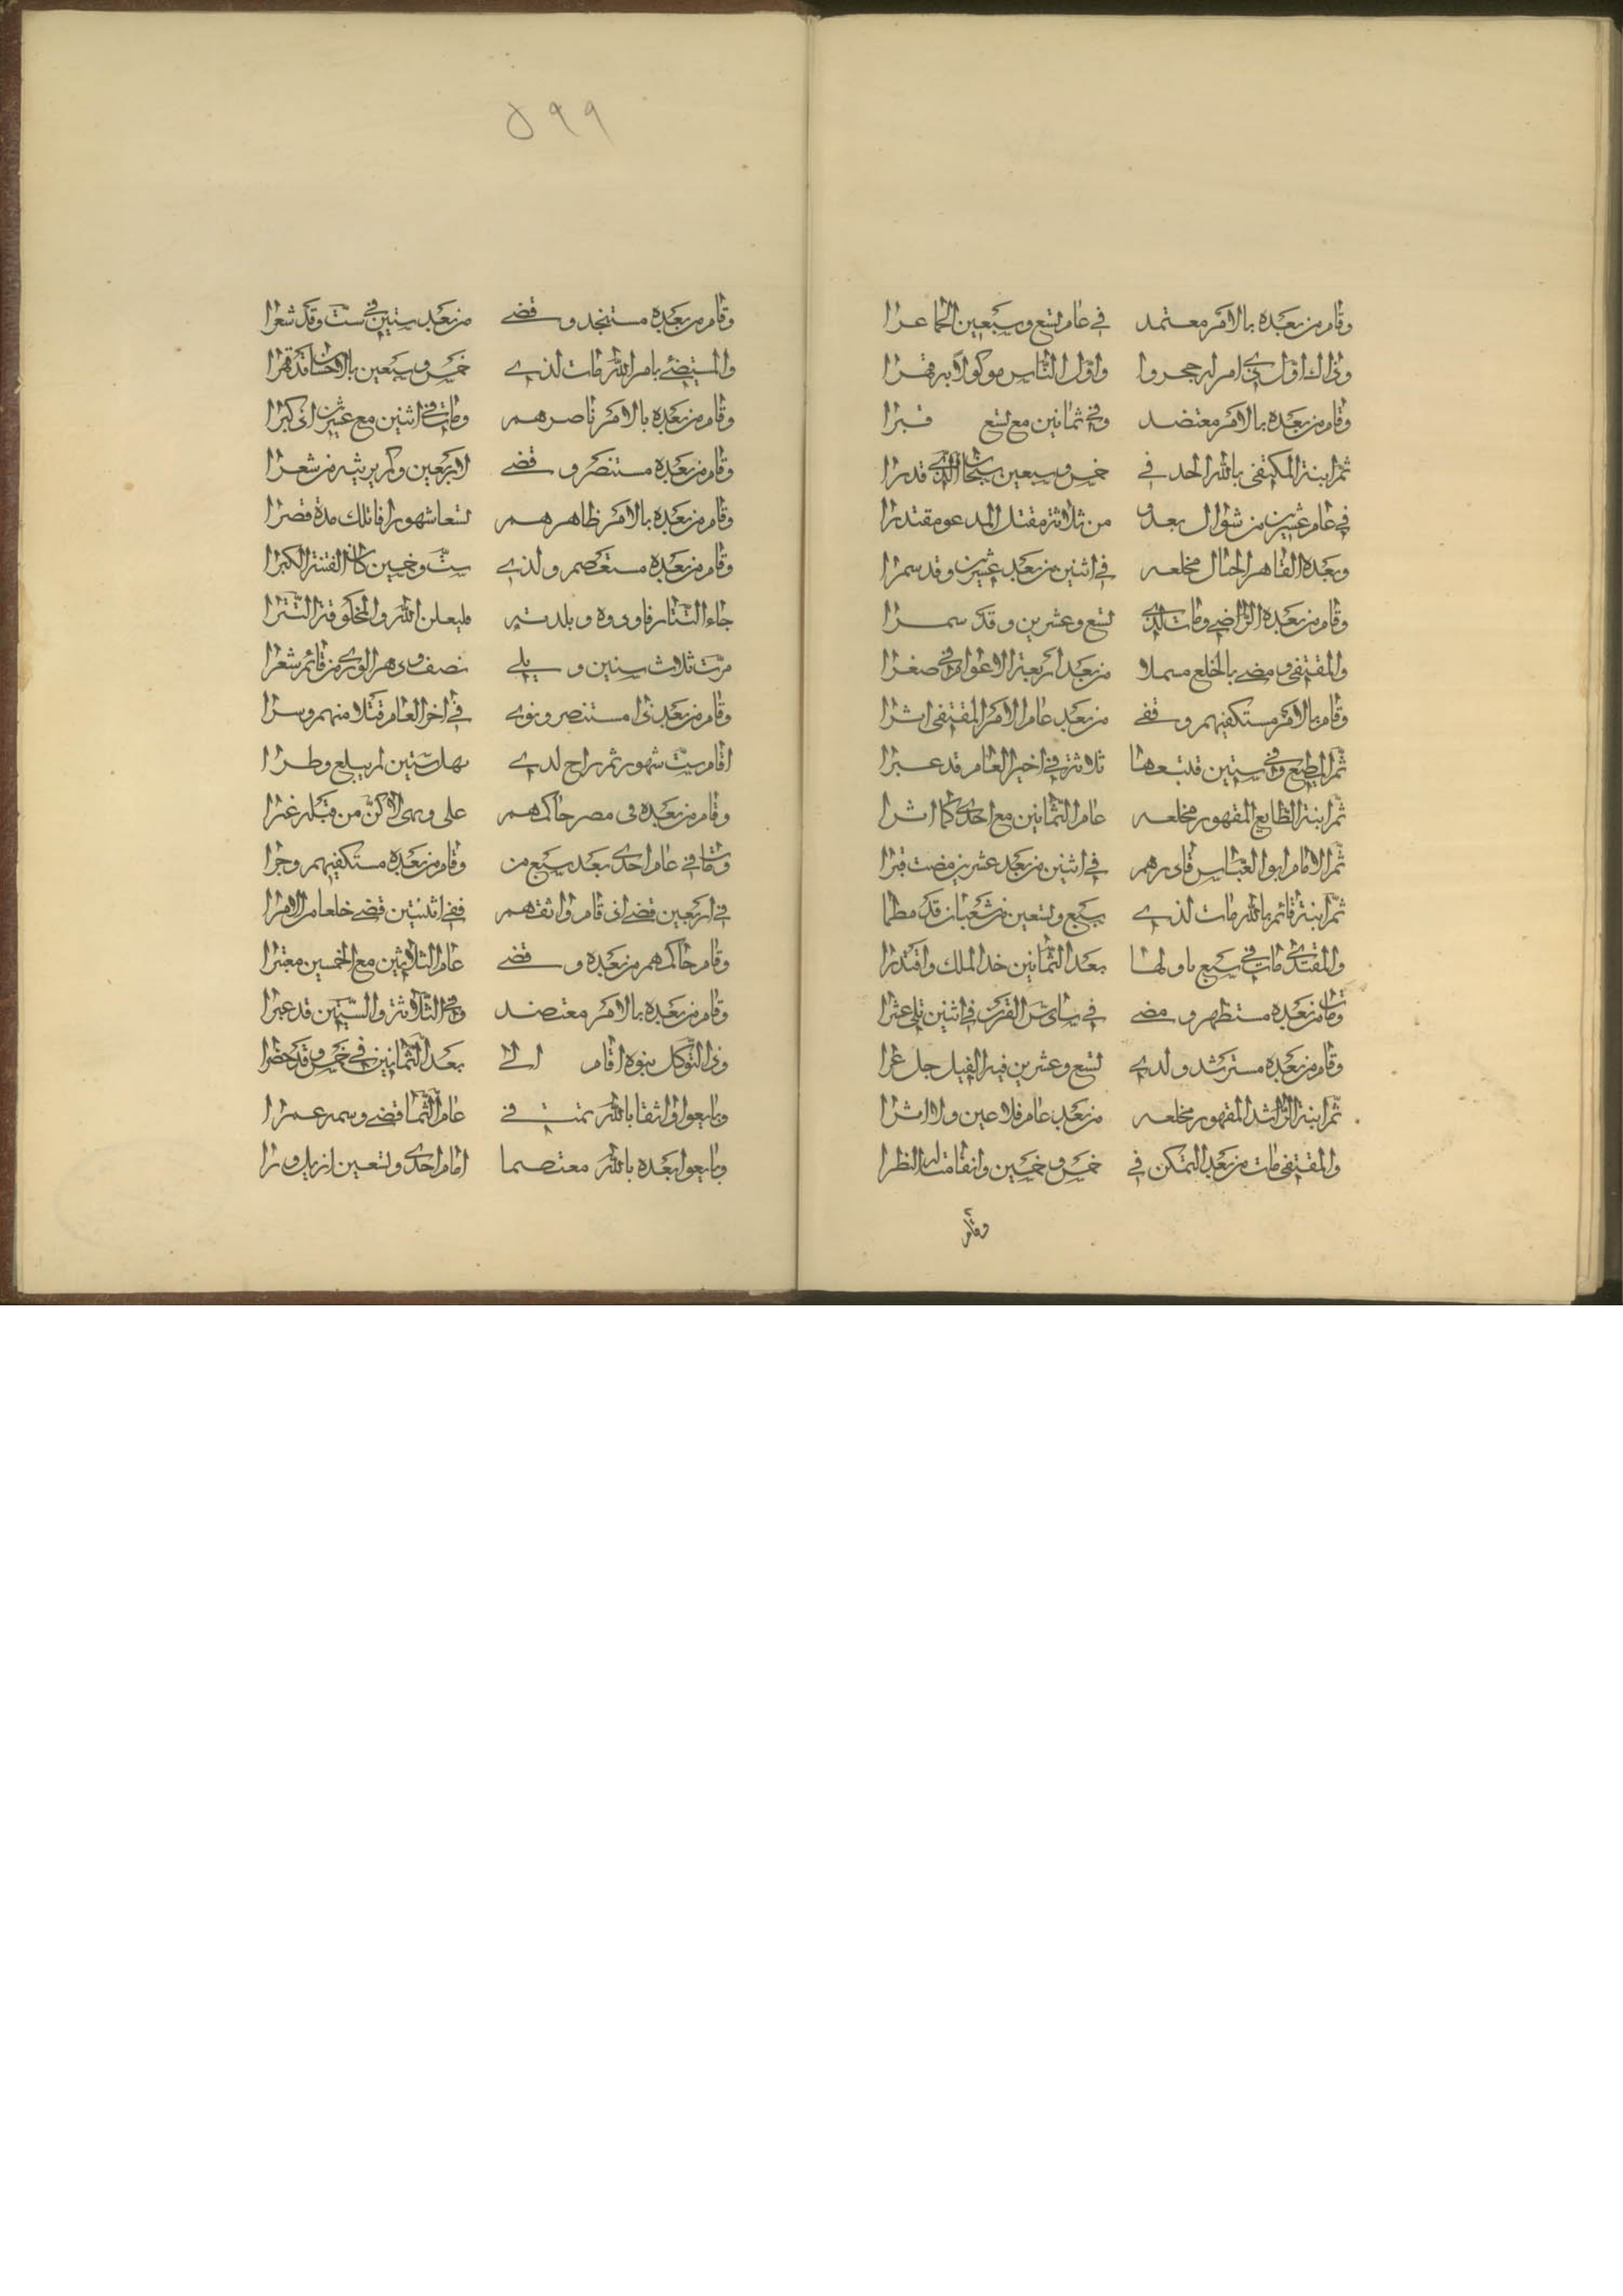 وقام من بعده بالامر معتمد في عام تسع وسبعين الحما عرا
وذاك اول ذي امر له حجروا واول الناس موكولا به قهرا
وقام من بعده بالامر معتضد وفي ثمانين مع تسع قبرا
ثم ابنه المكتفي بالله الحد في خمس وسبعين سبحان الذي قدرا
في عام عشرين من شوال بعد و من ثلاثة مقتل المدعو مقتدرا
وبعده القاهر الجبار مخلعه في اثنين من بعد عشرين وقد سمرا
وقام من بعده الراضي ومات لدي تسع وعشرين وقد سمرا
والمقتفي ومضي بالخلع مسملا من بعد اربعة الاعوام في صغرا
وقام بالامر مستكفيهم وقفي من بعد عام الامر المقتفي اثرا
ثم المطيع وفي ستين قد تبعها ثلاثة في اخير العام قد عبرا
ثم ابنه الطايع المقهور مخلعه عام الثمانين مع احدي كما اثرا
ثم الامام ابو العباس قادرهم في اثنين من بعد عشرين مضت قبرا
ثم ابنه قائم بالله مات لذي سبع وتسعين من شعبان قد سطرا
والمقتدي مات في سبع باولها بعد الثمانين خد الملك واقتدرا
وقام من بعده مستظهر ومضي في سادس القرن في اثنين تلي عشرا
وقام من بعده مسترشد ولدي تسع وعشرين فيه القيل جل عرا
ثم ابنه الراشد المقهور مخلعه من بعد عام فلا عين ولا اثرا
والمقتفي مات من بعد التمكن في خمس وخمسين وانقامت له النظرا
وقام
٥٩٩
وقام من بعده مستنجد وقضي من بعد ستين في ست وقد شعرا
والمستضئ بامر الله مات لذي خمس وسبعين بالاحسان قد قهرا
وقام من بعده بالامر ناصرهم ومات في اثنين مع عشرين اذ كبرا
وقام من بعده مستنصر وقضي لاربعين وكم يرثيه من شعرا
وقام من بعده بالامر ظاهرهم تسعا شهورا فاتلك مدة قصرا
وقام من بعده مستعصم ولذي ست وخمسين كان الفتنة الكبرا
جاء التتار فاردوه وبلدته فليعلن الله والمخلوقة التترا
مرت ثلاث سنين ويلي نصف ودهر الوري من قائم شغرا
وقام من بعد ذا مستنصر وثوي في اخر العام قتلا منهم وسرا
اقام ست شهور ثم راح لدي بهل ستين لم يبلغ وطرا
وقام من بعده في مصر حاكمهم علي وهي لا كن من قبله غبرا
ومات في عام احدي بعد سبع من وقام من بعده مستكفيهم وجرا
في اربعين قضي اذ قام واثقهم ففي اثنتين قضي خلعا من الامرا
وقام حاكمهم من بعده وقضي عام الثلاثين مع الخمسين معتبرا
وقام من بعده بالامر معتضد وفي الثلاثة والستين قد عبرا
وذا التوكل يتلوه اقام الي بعد الثمانين في خمس وقد حصرا
وبايعوا واثقا بالله تمت في عام الثما قضي وسمه عمرا
وبايعوا بعده بالله معتصما امام احدي وتسعين ازيل ورا